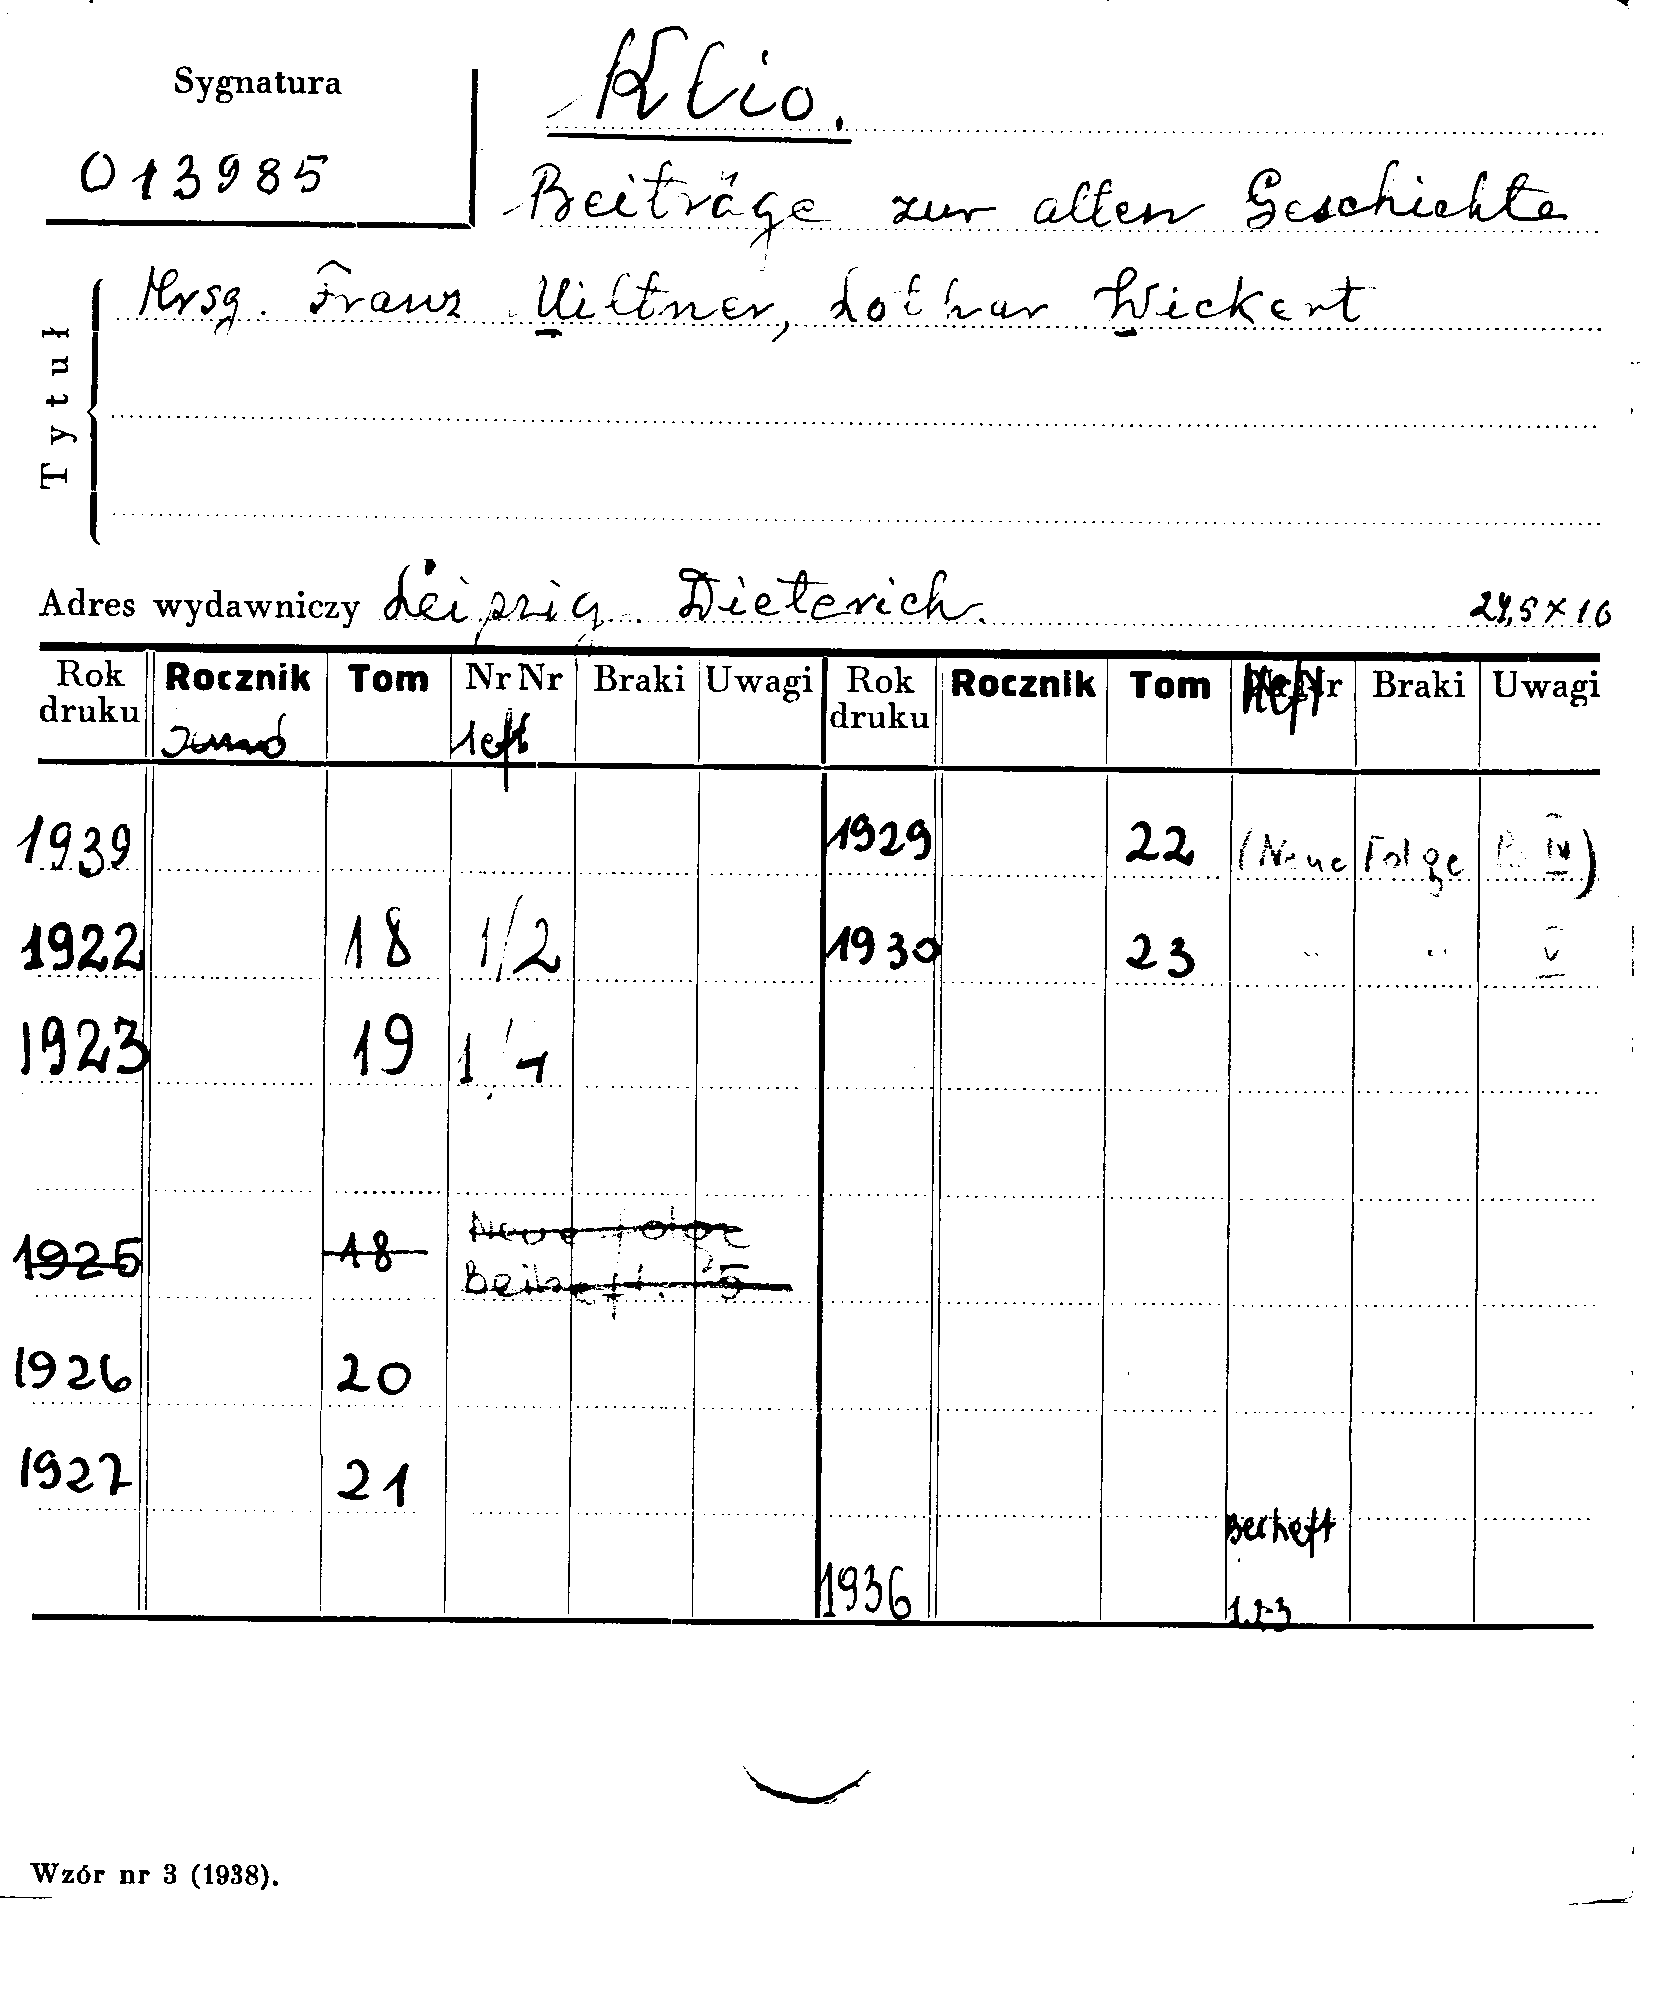 Sygnatura
013985
Klio.
Beiträge zur alten Geschichte
Hrsg. Franz Miltner, Lothar Wickert
Tytuł
Adres wydawniczy Leipzig. Dieterich. 24,5 × 16
Rok druku Rocznik Tom NrNr Braki Uwagi Rok druku Rocznik Tom Heft Braki Uwagi
Heft
1939 1929 22 (Neue Folge B. IV)
1922 18 1/2 1930 23 " " V
1923 19 1
1925 18 Neue Folge
Beiheft. 5
1926 20
1927 21
Beiheft
1936 1.2.3
Wzór nr 3 (1938).